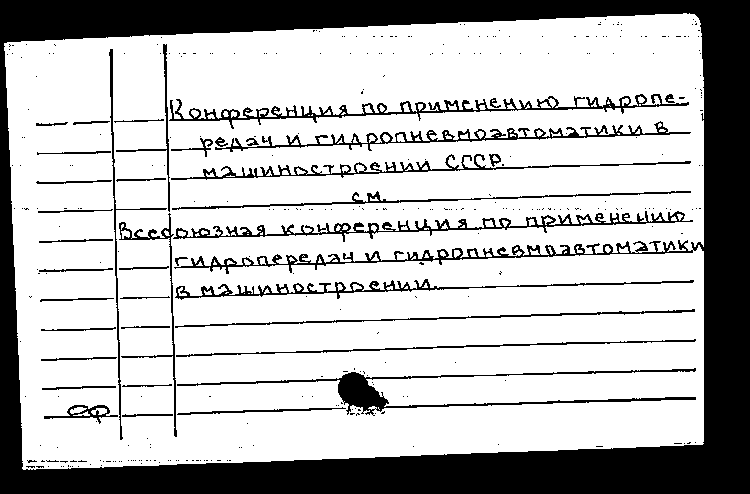 Конференция по применению гидропе-
редач и гидропневмоавтоматики в
машиностроении СССР
см.
Всесоюзная конференция по применению
гидропередач и гидропневмоавтоматики
в машиностроении.
оф